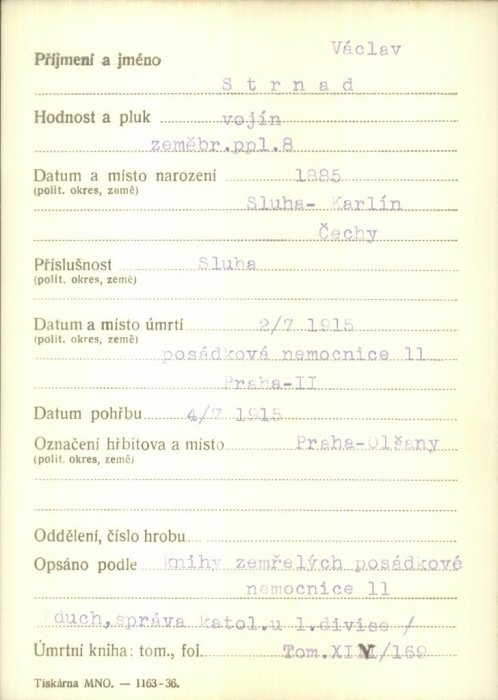 Václav
Příjmení a jméno
Strnad
Hodnost a pluk vojín
zeměbr.ppl.8
Datum a místo narození 1885
(polit. okres, země)
Sluha- Karlín
Čechy
Příslušnost Sluha
(polit. okres, země)
Datum a místo úmrtí 2/7 1915
(polit. okres, země)
posádková nemocnice 11
Praha-II
Datum pohřbu 4/7 1915
Označení hřbitova a místo Praha-Olšany
(polit. okres, země)
Oddělení, číslo hrobu
Opsáno podle knihy zemřelých posádkové
nemocnice 11
/duch,správa katol.u 1.divise /
Úmrtní kniha: tom., fol. /169
Tiskárna MNO. — 1163-36.